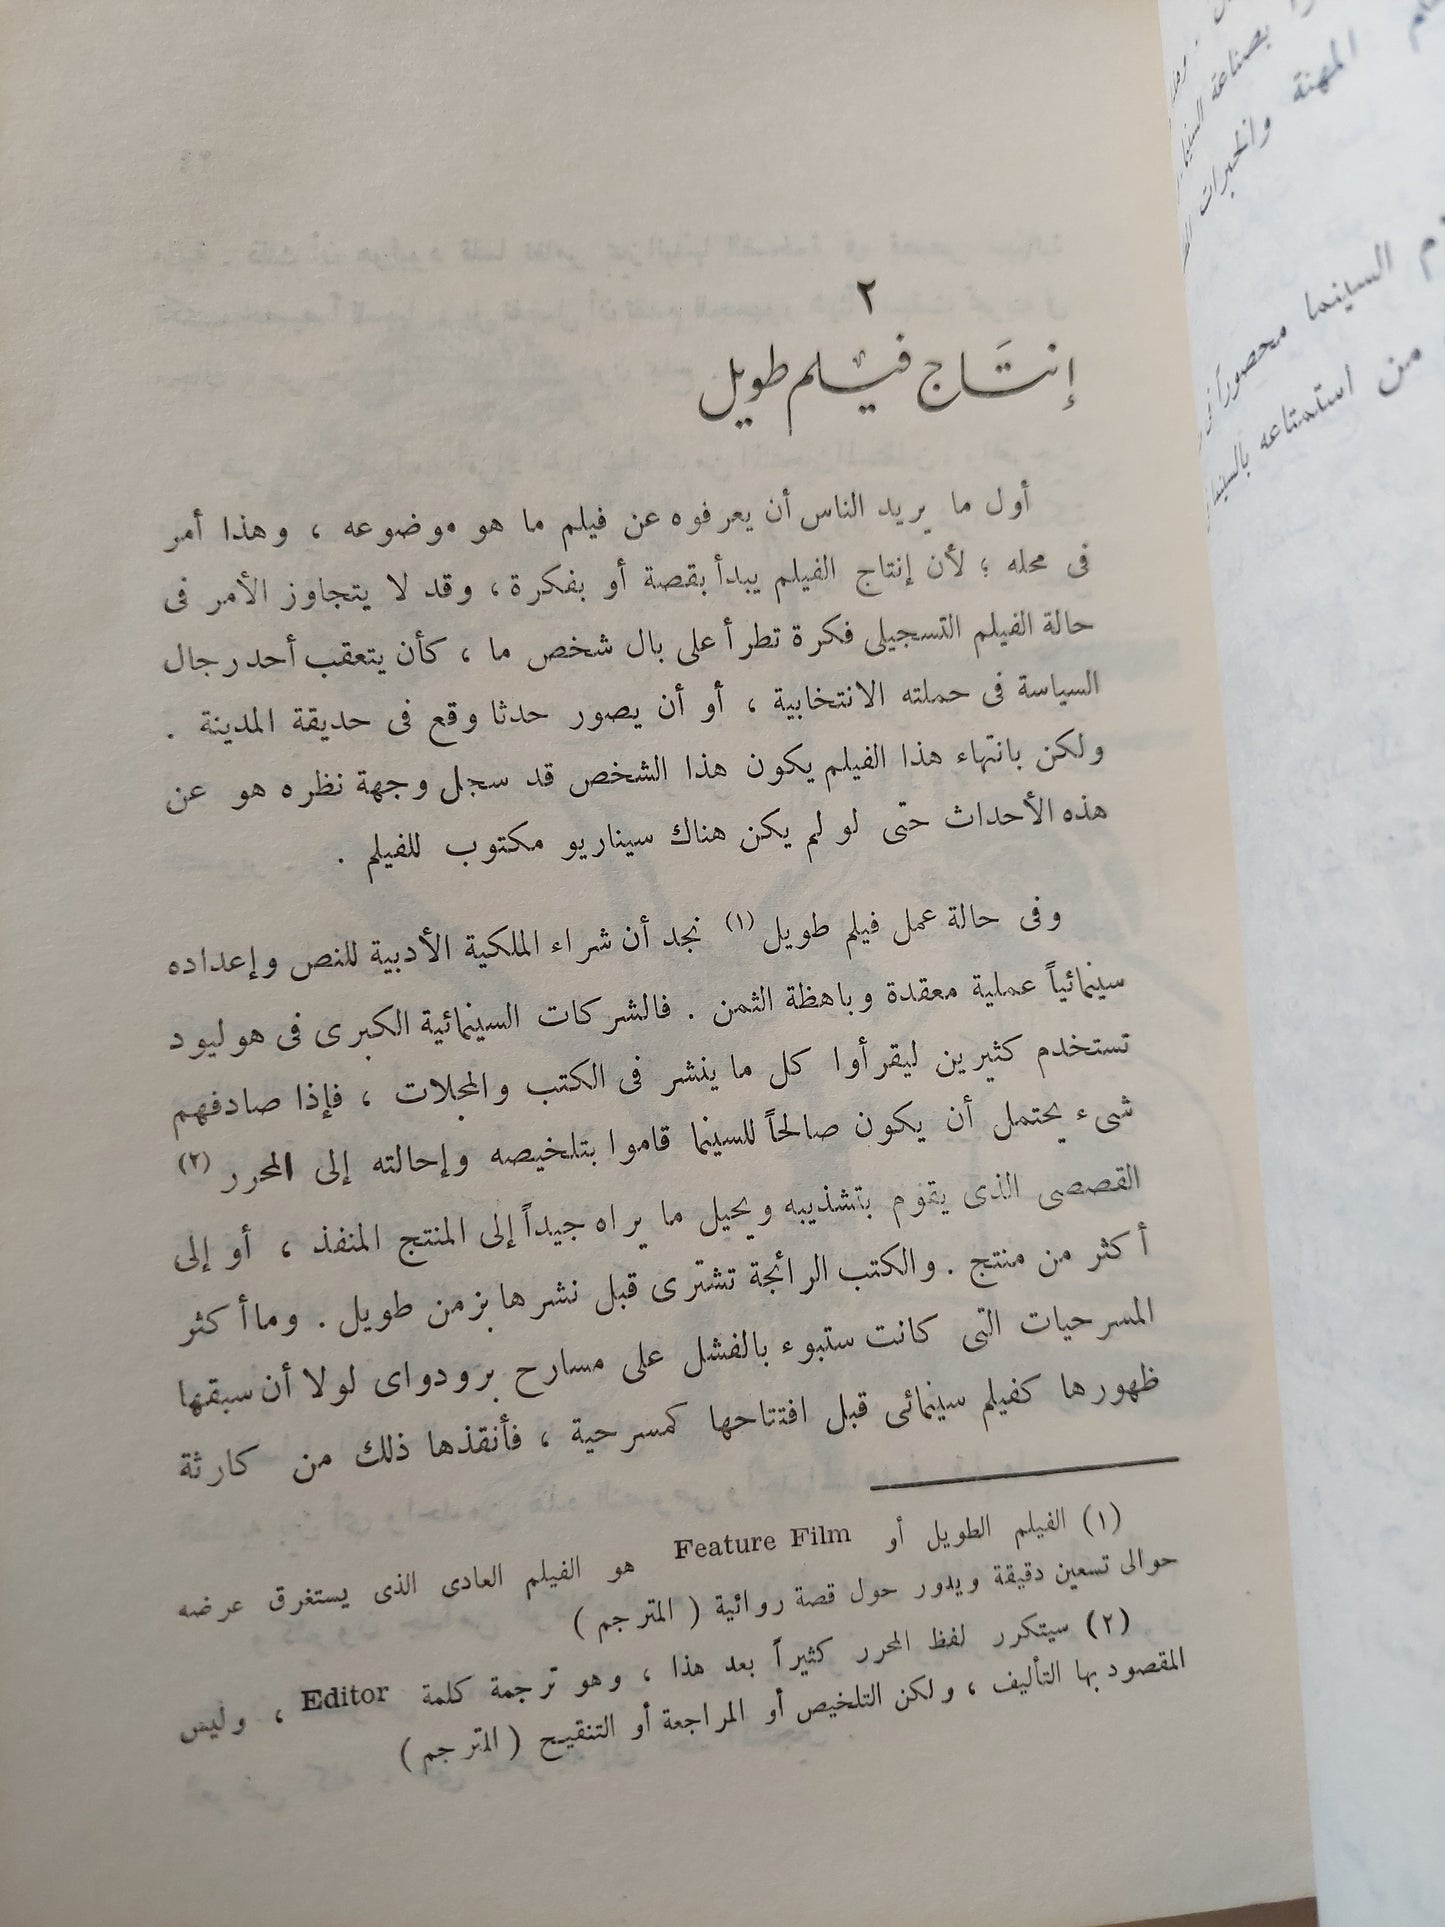 ٢
إنتاج فيلم طويل
أول ما يريد الناس أن يعرفوه عن فيلم ما هو موضوعه ، وهذا أمر
فى محله ؛ لأن إنتاج الفيلم يبدأ بقصة أو بفكرة ، وقد لا يتجاوز الأمر فى
حالة الفيلم التسجيلى فكرة تطرأ على بال شخص ما ، كأن يتعقب أحد رجال
السياسة فى حملته الانتخابية ، أو أن يصور حدثا وقع فى حديقة المدينة .
ولكن بانتهاء هذا الفيلم يكون هذا الشخص قد سجل وجهة نظره هو عن
هذه الأحداث حتى لو لم يكن هناك سيناريو مكتوب للفيلم .
وفى حالة عمل فيلم طويل (١) نجد أن شراء الملكية الأدبية للنص وإعداده
سينمائياً عملية معقدة وباهظة الثمن . فالشركات السينمائية الكبرى فى هوليود
تستخدم كثيرين ليقرأوا كل ما ينشر فى الكتب والمجلات ، فإذا صادفهم
شىء يحتمل أن يكون صالحاً للسينما قاموا بتلخيصه وإحالته إلى المحرر (٢)
القصصى الذى يقوم بتشذيبه ويحيل ما يراه جيداً إلى المنتج المنفذ ، أو إلى
أكثر من منتج . والكتب الرائجة تشترى قبل نشرها بزمن طويل . وما أكثر
المسرحيات التى كانت ستبوء بالفشل على مسارح برودواى لولا أن سبقها
ظهورها كفيلم سينمائى قبل افتتاحها كمسرحية ، فأنقذها ذلك من كارثة
(١) الفيلم الطويل أو Feature Film هو الفيلم العادى الذى يستغرق عرضه
حوالى تسعين دقيقة ويدور حول قصة روائية ( المترجم )
(٢) سيتكرر لفظ المحرر كثيراً بعد هذا ، وهو ترجمة كلمة Editor ، وليس
المقصود بها التأليف ، ولكن التلخيص أو المراجعة أو التنقيح ( المترجم )
بصناعة السينما
المهنة والخبرات
السينما محصوراً فى
من استمتاعه بالسينما